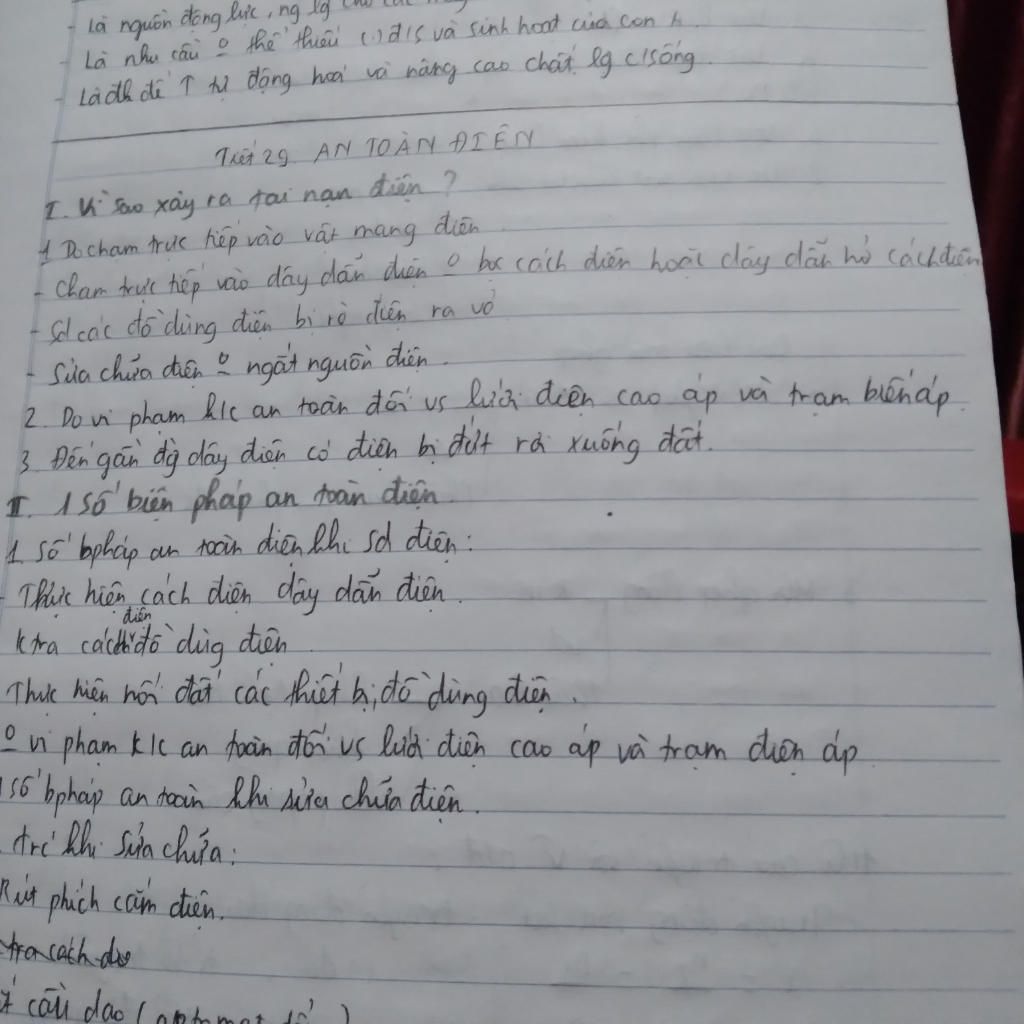 - Là nguồn động lực, ng lg cho các
- Là nhu cầu o thể thiếu (.) đ/s và sinh hoạt của con
- Là đk để ↑ tự động hoá và nâng cao chất lg c/sống.
Tiết 29. AN TOÀN ĐIỆN
I. Vì sao xảy ra tai nạn điện ?
1 Do chạm trực tiếp vào vật mang điện
- Chạm trực tiếp vào dây dẫn điện o bọc cách điện hoặc dây dẫn hở cách điện
- Sd các đồ dùng điện bị rò điện ra vỏ
- Sửa chữa điện o ngắt nguồn điện.
2. Do vi phạm k/c an toàn đối vs lưới điện cao áp và trạm biến áp.
3. Đến gần đg dây điện có điện bị đứt rơi xuống đất.
II. 1 số biện pháp an toàn điện.
1 số bpháp an toàn điện khi sd điện:
- Thực hiện cách điện dây dẫn điện.
ktra cách điện đồ dùg điện
Thực hiện nối đất các thiết bị, đồ dùng điện.
o vi phạm k/c an toàn đối vs lưới điện cao áp và trạm điện áp
1 số bpháp an toàn khi sửa chữa điện.
. trc khi sửa chữa:
Rút phích cắm điện.
tra cách
cầu dao (aptomat